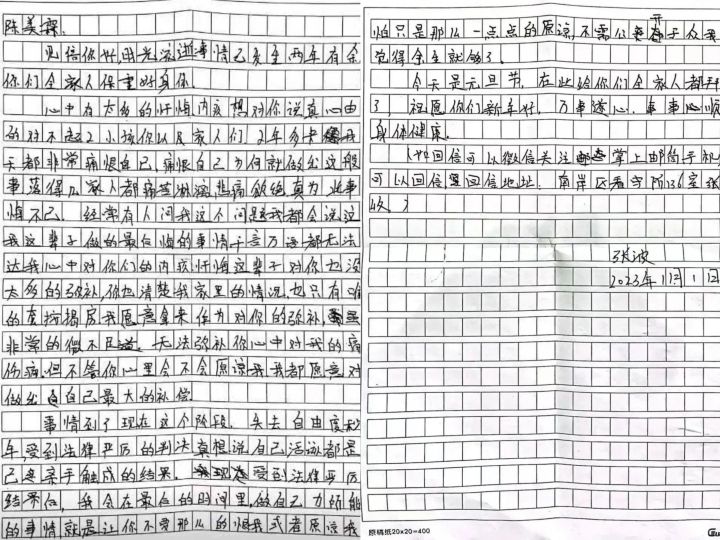 陈美霖:
见信你好,时光流逝事情已发生两年有余
你们全家人保重好身体。
心中有太多的忏悔内疚想对你说真心由
的对不起2个小孩你以及家人们,2年多来我
天都非常痛恨自己,痛恨自己为何就做出这般
事落得几家人都痛苦 悲痛欲绝真为此事
悔不已。经常有人问我这个问题我都会说这
我这辈子做的最后悔的事情千言万语都无法
达我心中对你们的内疚忏悔这辈子对你也没
太多的弥补,你也清楚我家里的情况,也只有唯
的 房我愿意拿来作为对你的弥补,
非常的微不足道,无法弥补你心中对我的痛
伤痛。但不管你心里会不会原谅我我都愿意对
做出自己最大的补偿
事情到了现在这个阶段。失去自由度秒
年,受到法律严厉的判决真想说自己活该都是
己亲手触成的结果。 受到法律严厉
结果后,我会在最后的时间里,做自己力所能
的事情,就是让你不要那么的恨我或者原谅我
怕只是那么一点点的原谅,不需公开于众我
觉得余生就够了。
今天是元旦节,在此给你们全家人都拜
了 祝愿你们新年好,万事遂心,事事心顺
身体健康。
(如回信可以微信关注 掌上邮局手机
可以回信 回信地址:南岸区看守所136室张
收)
张波
2023年1月1日
原稿纸20×20=400